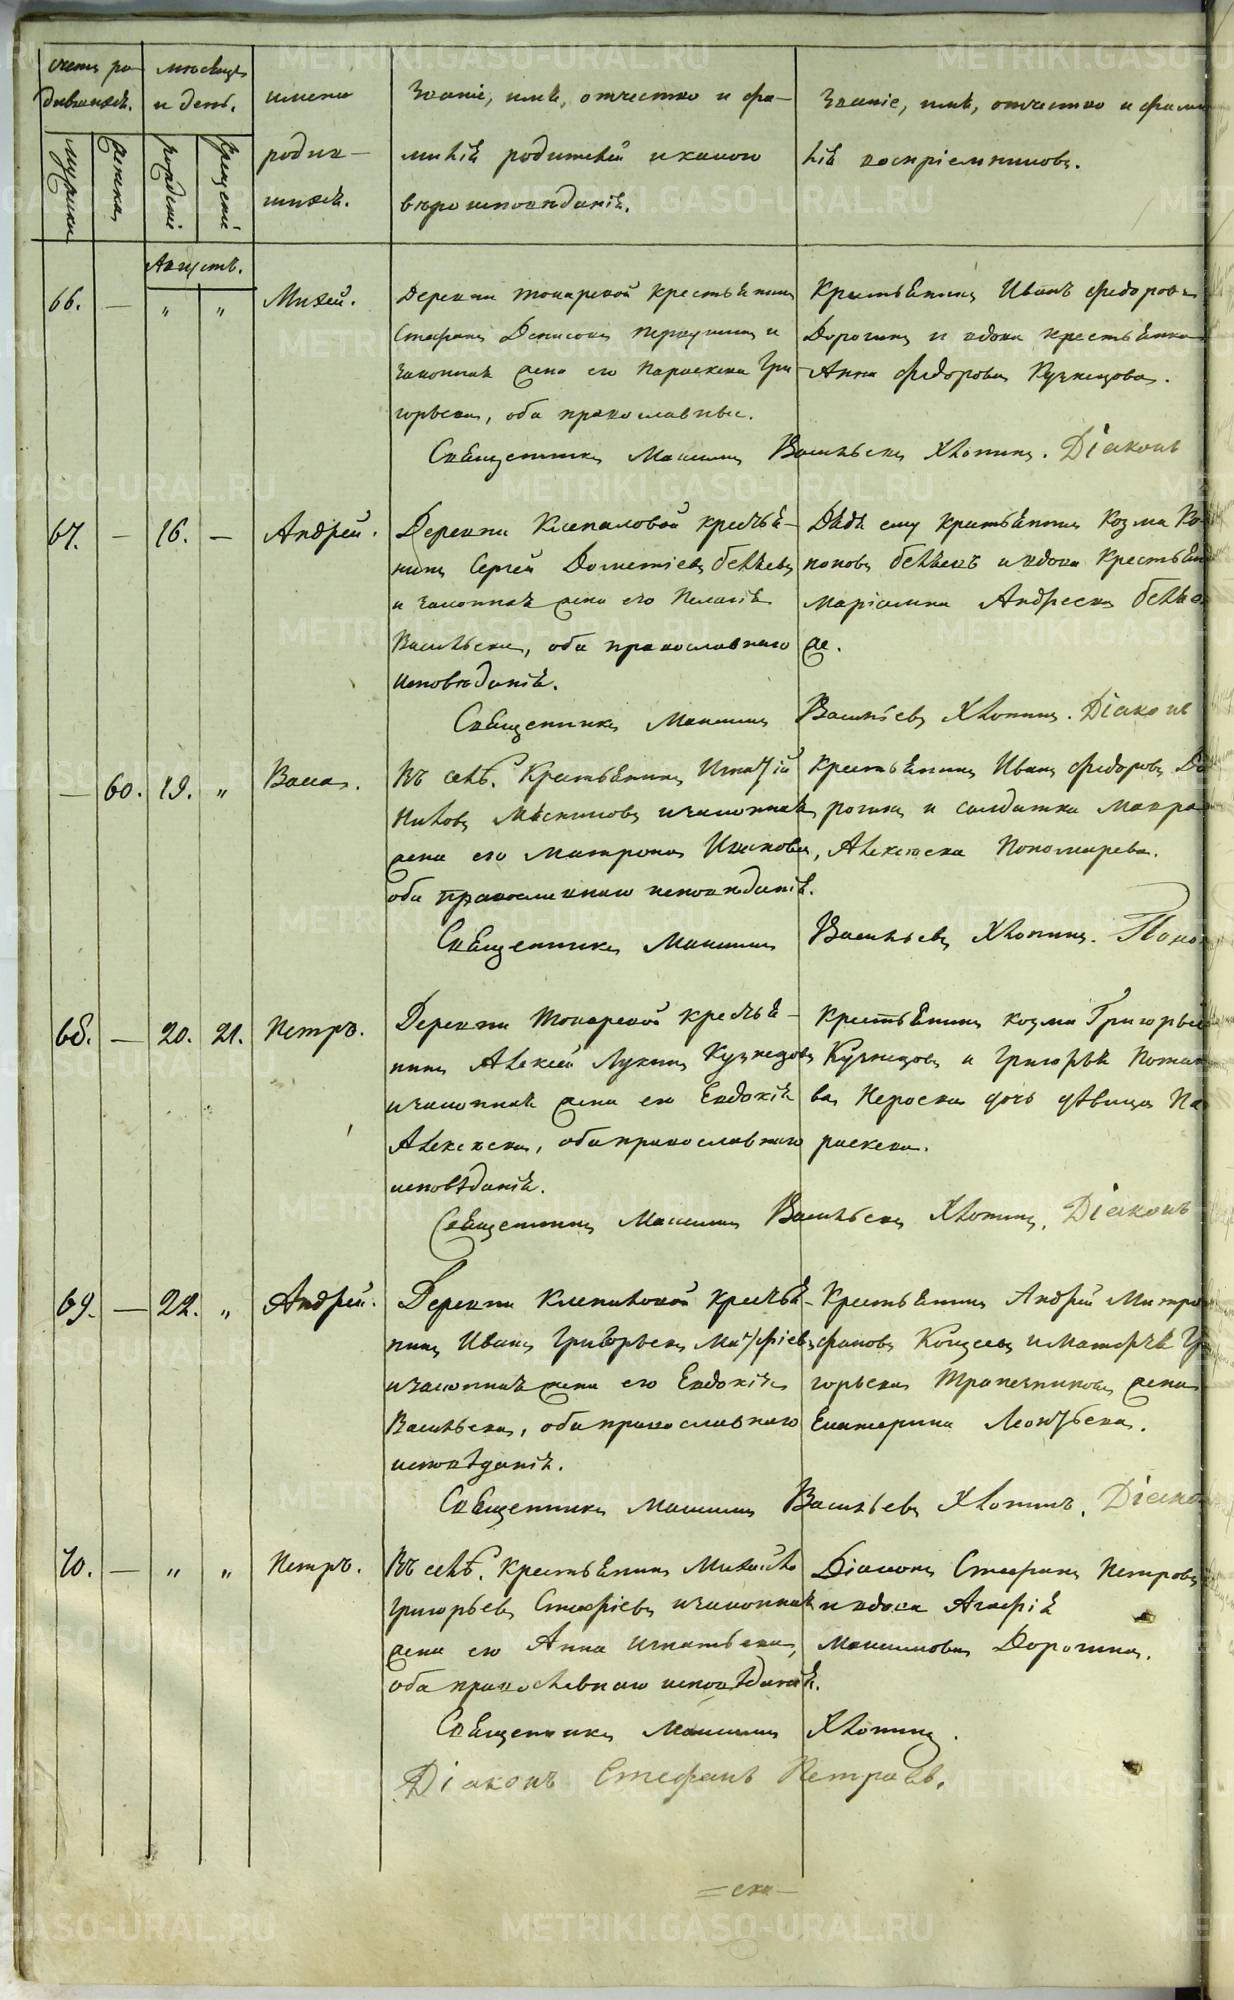 счетъ ро- мѣсяцъ имена Званіе, имя, отчество и фа- Званіе, имя, отчество и фами
дившихся. и день. родив- милія родителей и какого лія воспріемниковъ.
мужска женска рожденія крещенія шихся. вѣроисповѣданія.
Августъ.
66. — " " Михей. Деревни Токаревой крестьянинъ Крестьянинъ Иванъ Федоровъ
Стефанъ Денисовъ и Дорогинъ и вдова крестьянка
законная жена его Параскева Гри- Анна Федорова Кузнецова.
горьева, оба православные.
Священникъ Максимъ Васильевъ Хлопинъ. Діаконъ
67. — 16. — Андрей. Деревни крестья- Дѣдъ ему крестьянинъ Козма Ко-
нинъ Сергей Дометіевъ Бѣляевъ ноновъ Бѣляевъ и вдова крестьян
и законная жена его Пелагія Маріамна Андреева Бѣляе
Васильева, оба православнаго же.
исповѣданія.
Священникъ Максимъ Васильевъ Хлопинъ. Діаконъ
— 60. 19. " Васса. Въ селѣ. Крестьянинъ Игнатій Крестьянинъ Иванъ Федоровъ До
и законная рогинъ и солдатка Мавра
жена его Матрона Иванова, Алексѣева Пономарева.
оба православнаго исповѣданія.
Священникъ Максимъ Васильевъ Хлопинъ. Поно
68. — 20. 21. Петръ. Деревни Токаревой крестья- Крестьянинъ Козма Григорьев
нинъ Алексей Лукинъ Кузнецовъ Кузнецовъ и Григорья
и законная жена его Евдокія дочь дѣвица Па
Алексѣева, оба православнаго раскева.
исповѣданія.
Священникъ Максимъ Васильевъ Хлопинъ. Діаконъ
69. — 22. " Андрей. Деревни крестья- Крестьянинъ Андрей Митро
нинъ Иванъ Григорьевъ фановъ и Гри
и законная жена его Евдокія горьева жена
Васильева, оба православнаго Екатерина Леонтьева.
исповѣданія.
Священникъ Максимъ Васильевъ Хлопинъ. Діако
70. — " " Петръ. Въ селѣ. Крестьянинъ Михайло Діаконъ Стефанъ Петровъ
Григорьевъ и законная и вдова Агафія
жена его Анна Игнатьева, Максимова Дорогина.
оба православнаго исповѣданія.
Священникъ Максимъ Хлопинъ.
Діаконъ Стефанъ Петровъ.